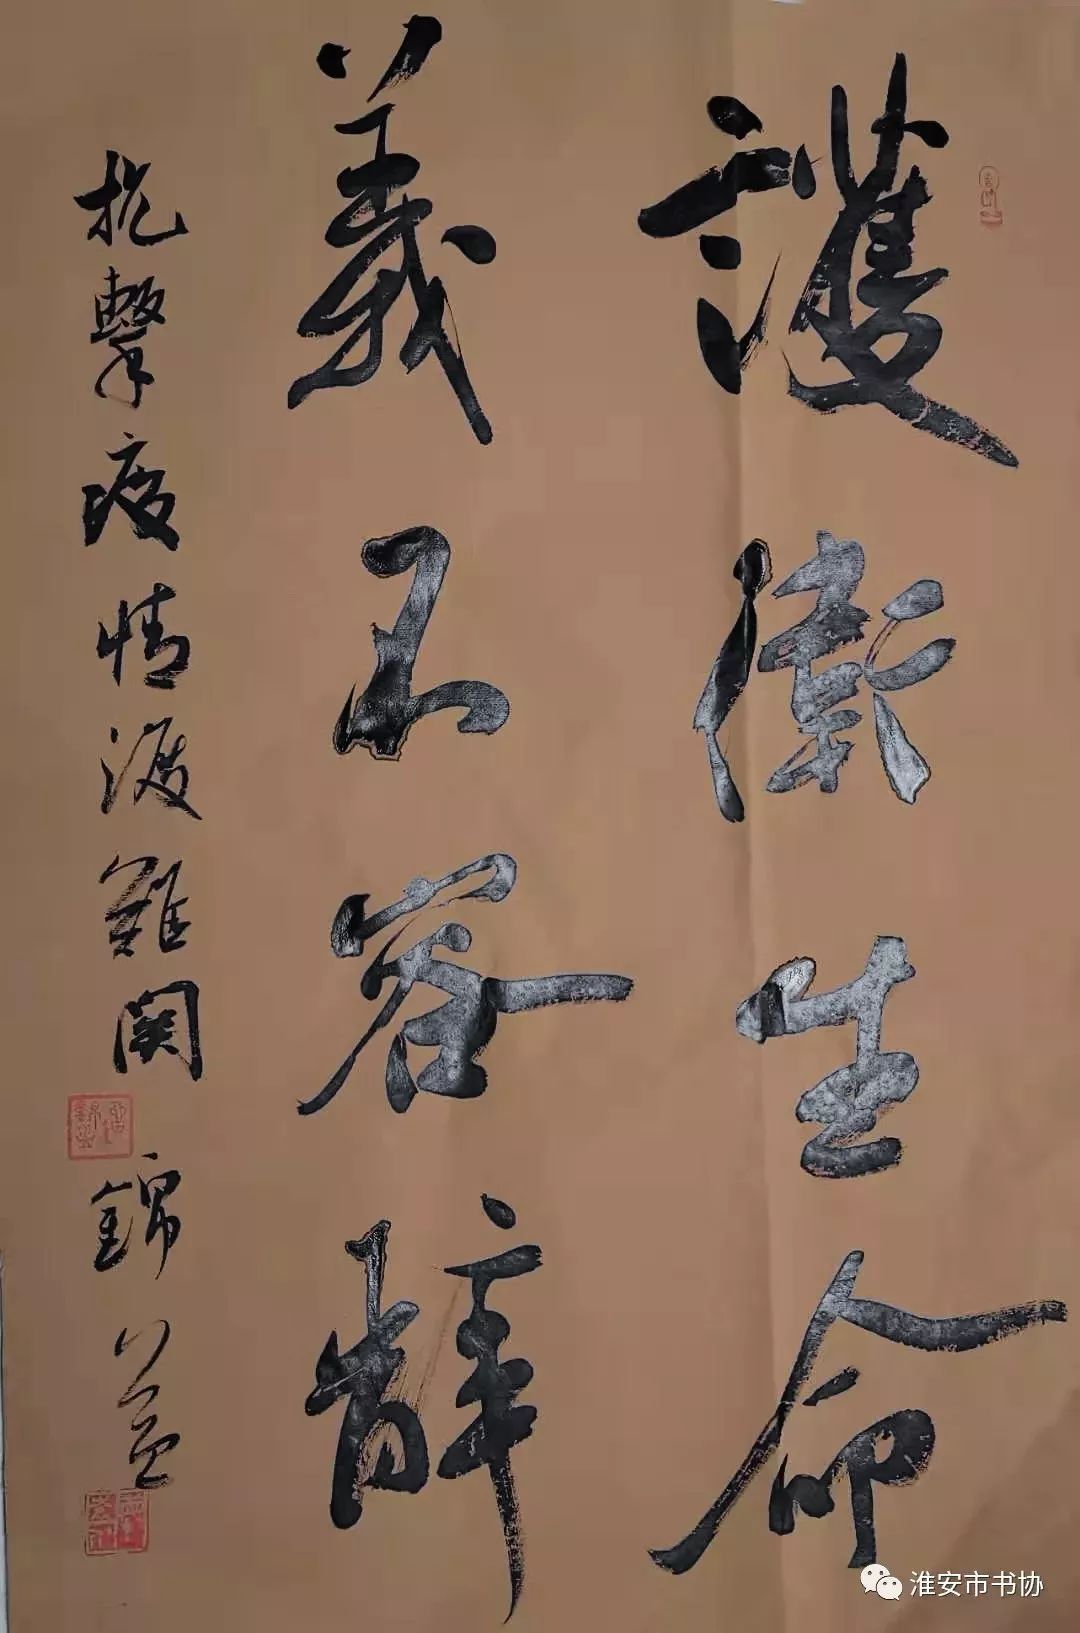 護衛生命
義不容辭
抗擊疫情渡難関 錦益
淮安市书协